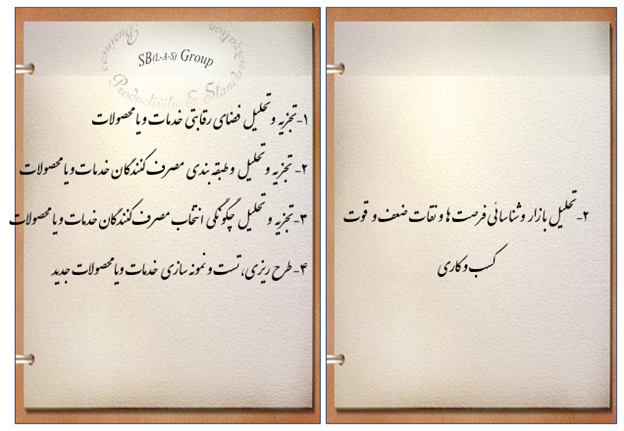 SB(L-A-S) Group
Productivity & Standardization
Business
۱-تجزیه و تحلیل فضای رقابتی خدمات و یا محصولات
۲- تجزیه و تحلیل و طبقه بندی مصرف کنندگان خدمات و یا محصولات
۳-تجزیه و تحلیل چگونگی انتخاب مصرف کنندگان خدمات و یا محصولات
۴- طرح ریزی، تست و نمونه سازی خدمات و یا محصولات جدید
۲-تحلیل بازار و شناسائی فرصت ها و نقات ضعف و قوت
کسب و کاری